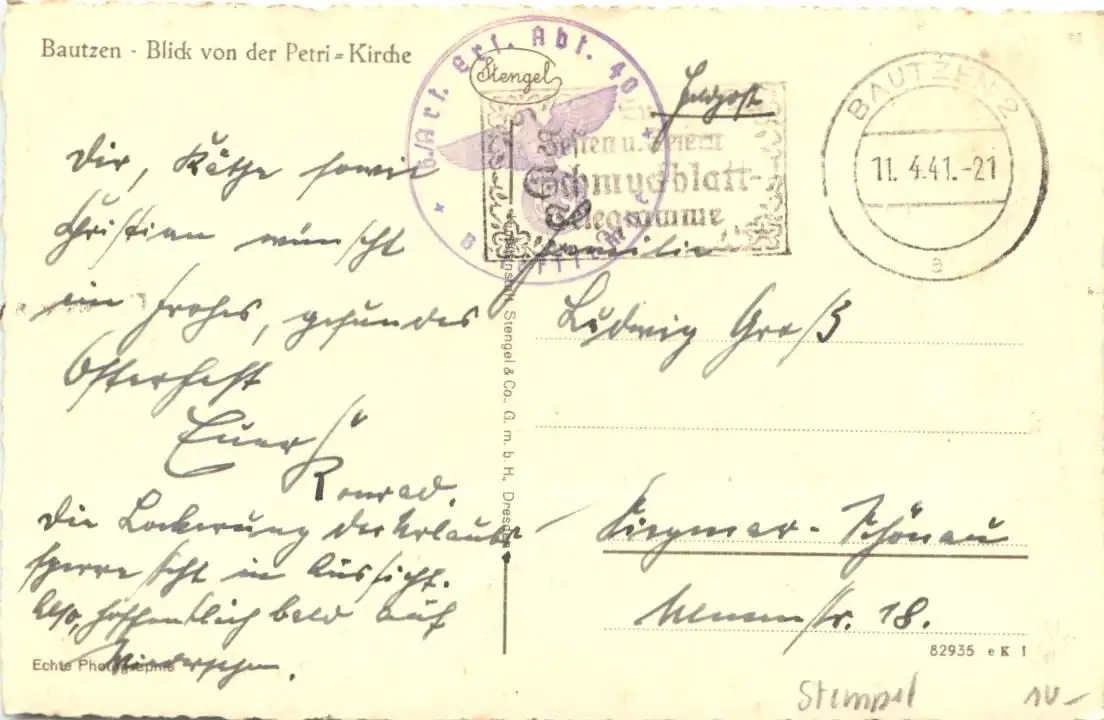 Bautzen - Blick von der Petri=Kirche
Stengel
Feldpost
BAUTZEN 2
11. 4. 41.-21
a
6./Art. Ers. Abt. 40
Festen u. Feiern
Schmuckblatt-
Telegramme
Dir, Käthe sowie
Christian wünscht
ein frohes, gesundes
Osterfest
Euer
Konrad.
Die Lockerung der Urlaubs
sperre steht in Aussicht.
Also, hoffentlich bald auf
Wiedersehen.
Echte Photographie
Kunstanstalt Stengel & Co., G. m. b. H., Dresden
Familie
Ludwig Groß
Siegmar-Schönau
str. 18.
82935 e K 1
Stempel 10.-